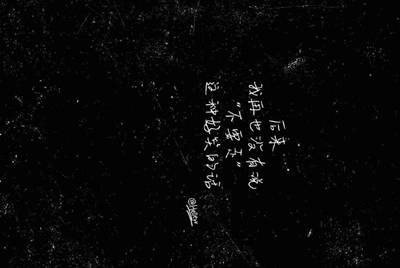 后来
我再也没有说
“不要走”
这种好笑的话